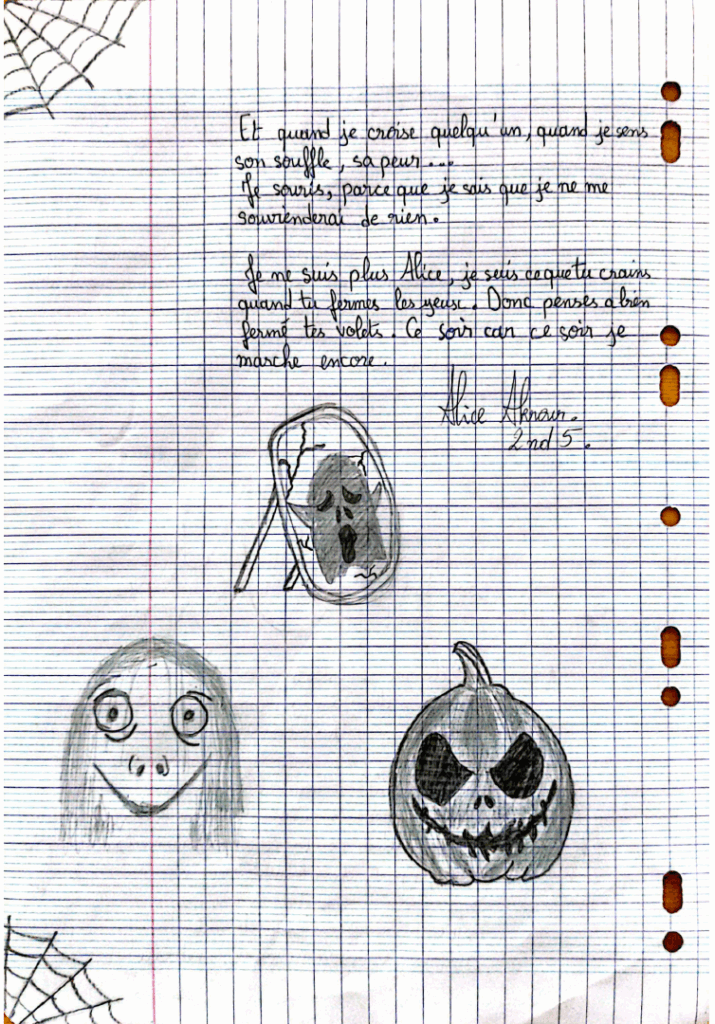 Et quand je croise quelqu'un, quand je sens
son souffle, sa peur...
Je souris, parce que je sais que je ne me
souvienderai de rien.
Je ne suis plus Alice, je suis ce que tu crains
quand tu fermes les yeux. Donc penses a bien
fermé tes volets. Ce soir car ce soir je
marche encore.
Alice
2nd 5.